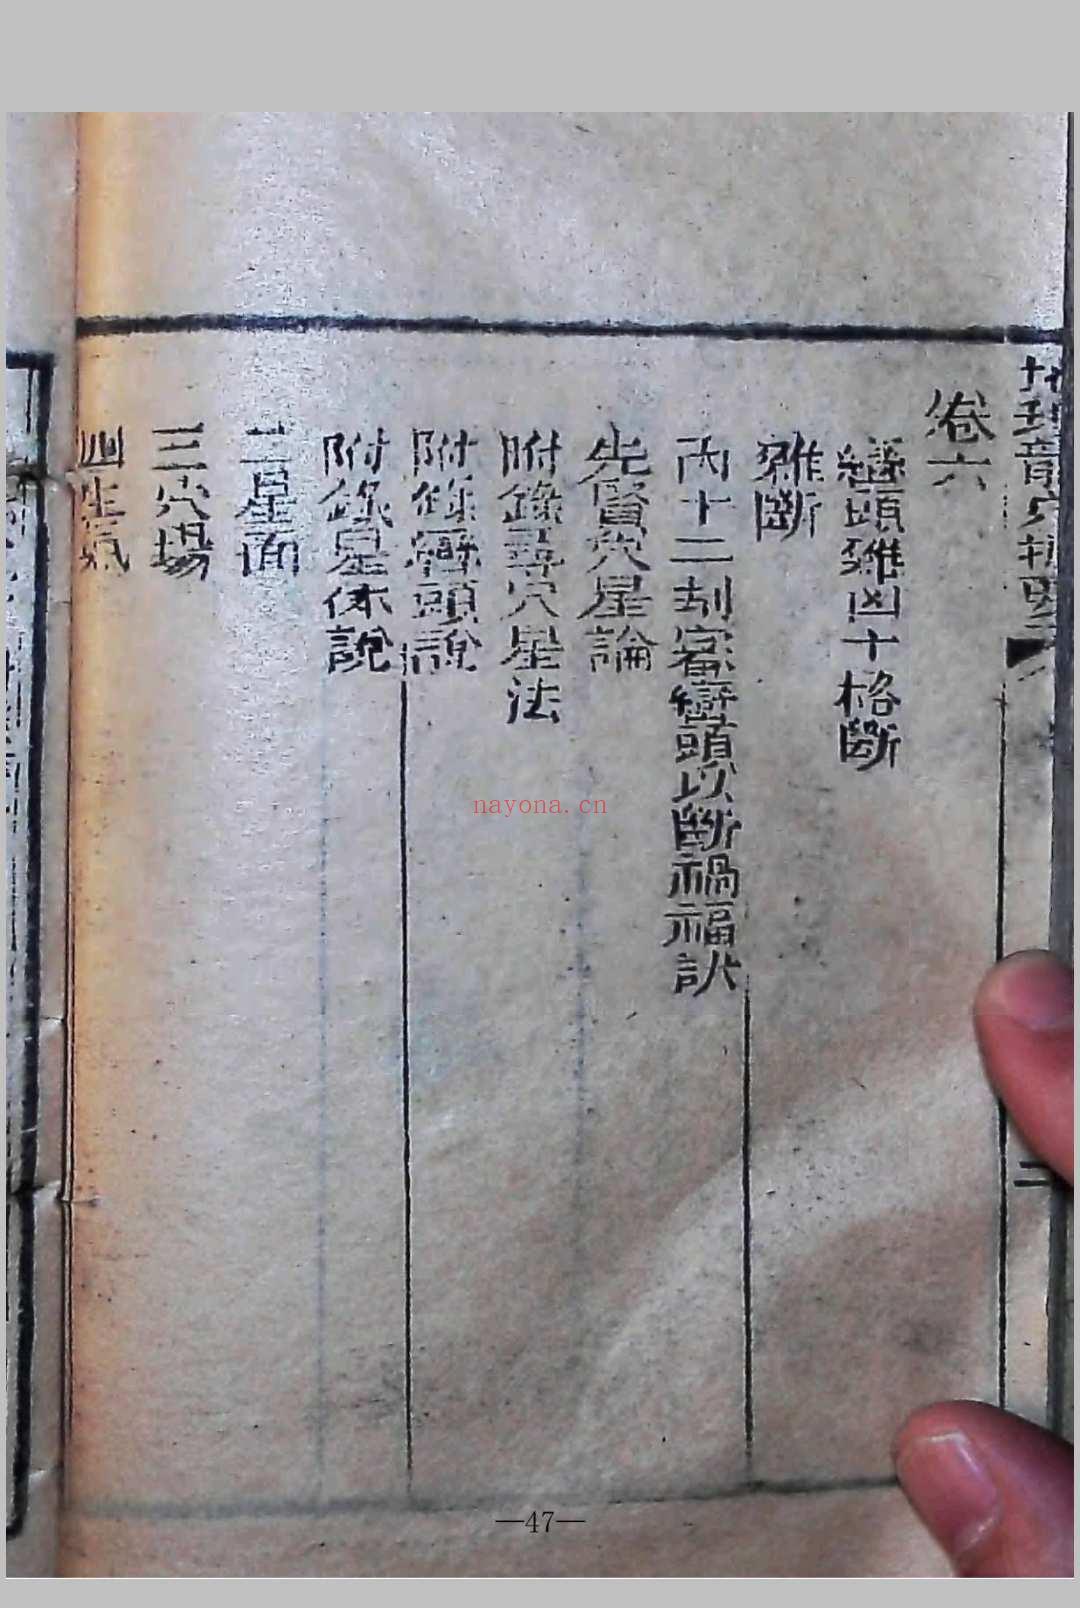 卷六
巒頭雜凶十格斷
雜斷
丙十二刻審巒頭以斷禍福訣
先賢穴星論
附錄尋穴星法
附錄巒頭說
附錄星体說
二星面
三穴場
四生氣
地理龍穴
二
nayona.cn
—47—